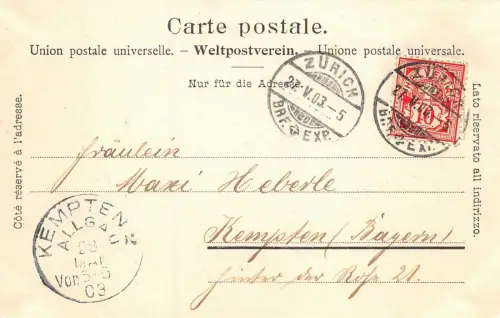 Carte postale.
Union postale universelle. – Weltpostverein. – Unione postale universale.
Nur für die Adresse.
Côté réservé à l'adresse.
Lato riservato all indirizzo.
ZÜRICH
27.V.03.–5
BRF. EXP.
ZÜRICH
27.V.
BRF. EXP.
10
Fräulein
Maxi Heberle
Kempten (Bayern)
hinter der Rose 21.
KEMPTEN 2
ALLGÄU
28
MAI
Vor 5-6
03